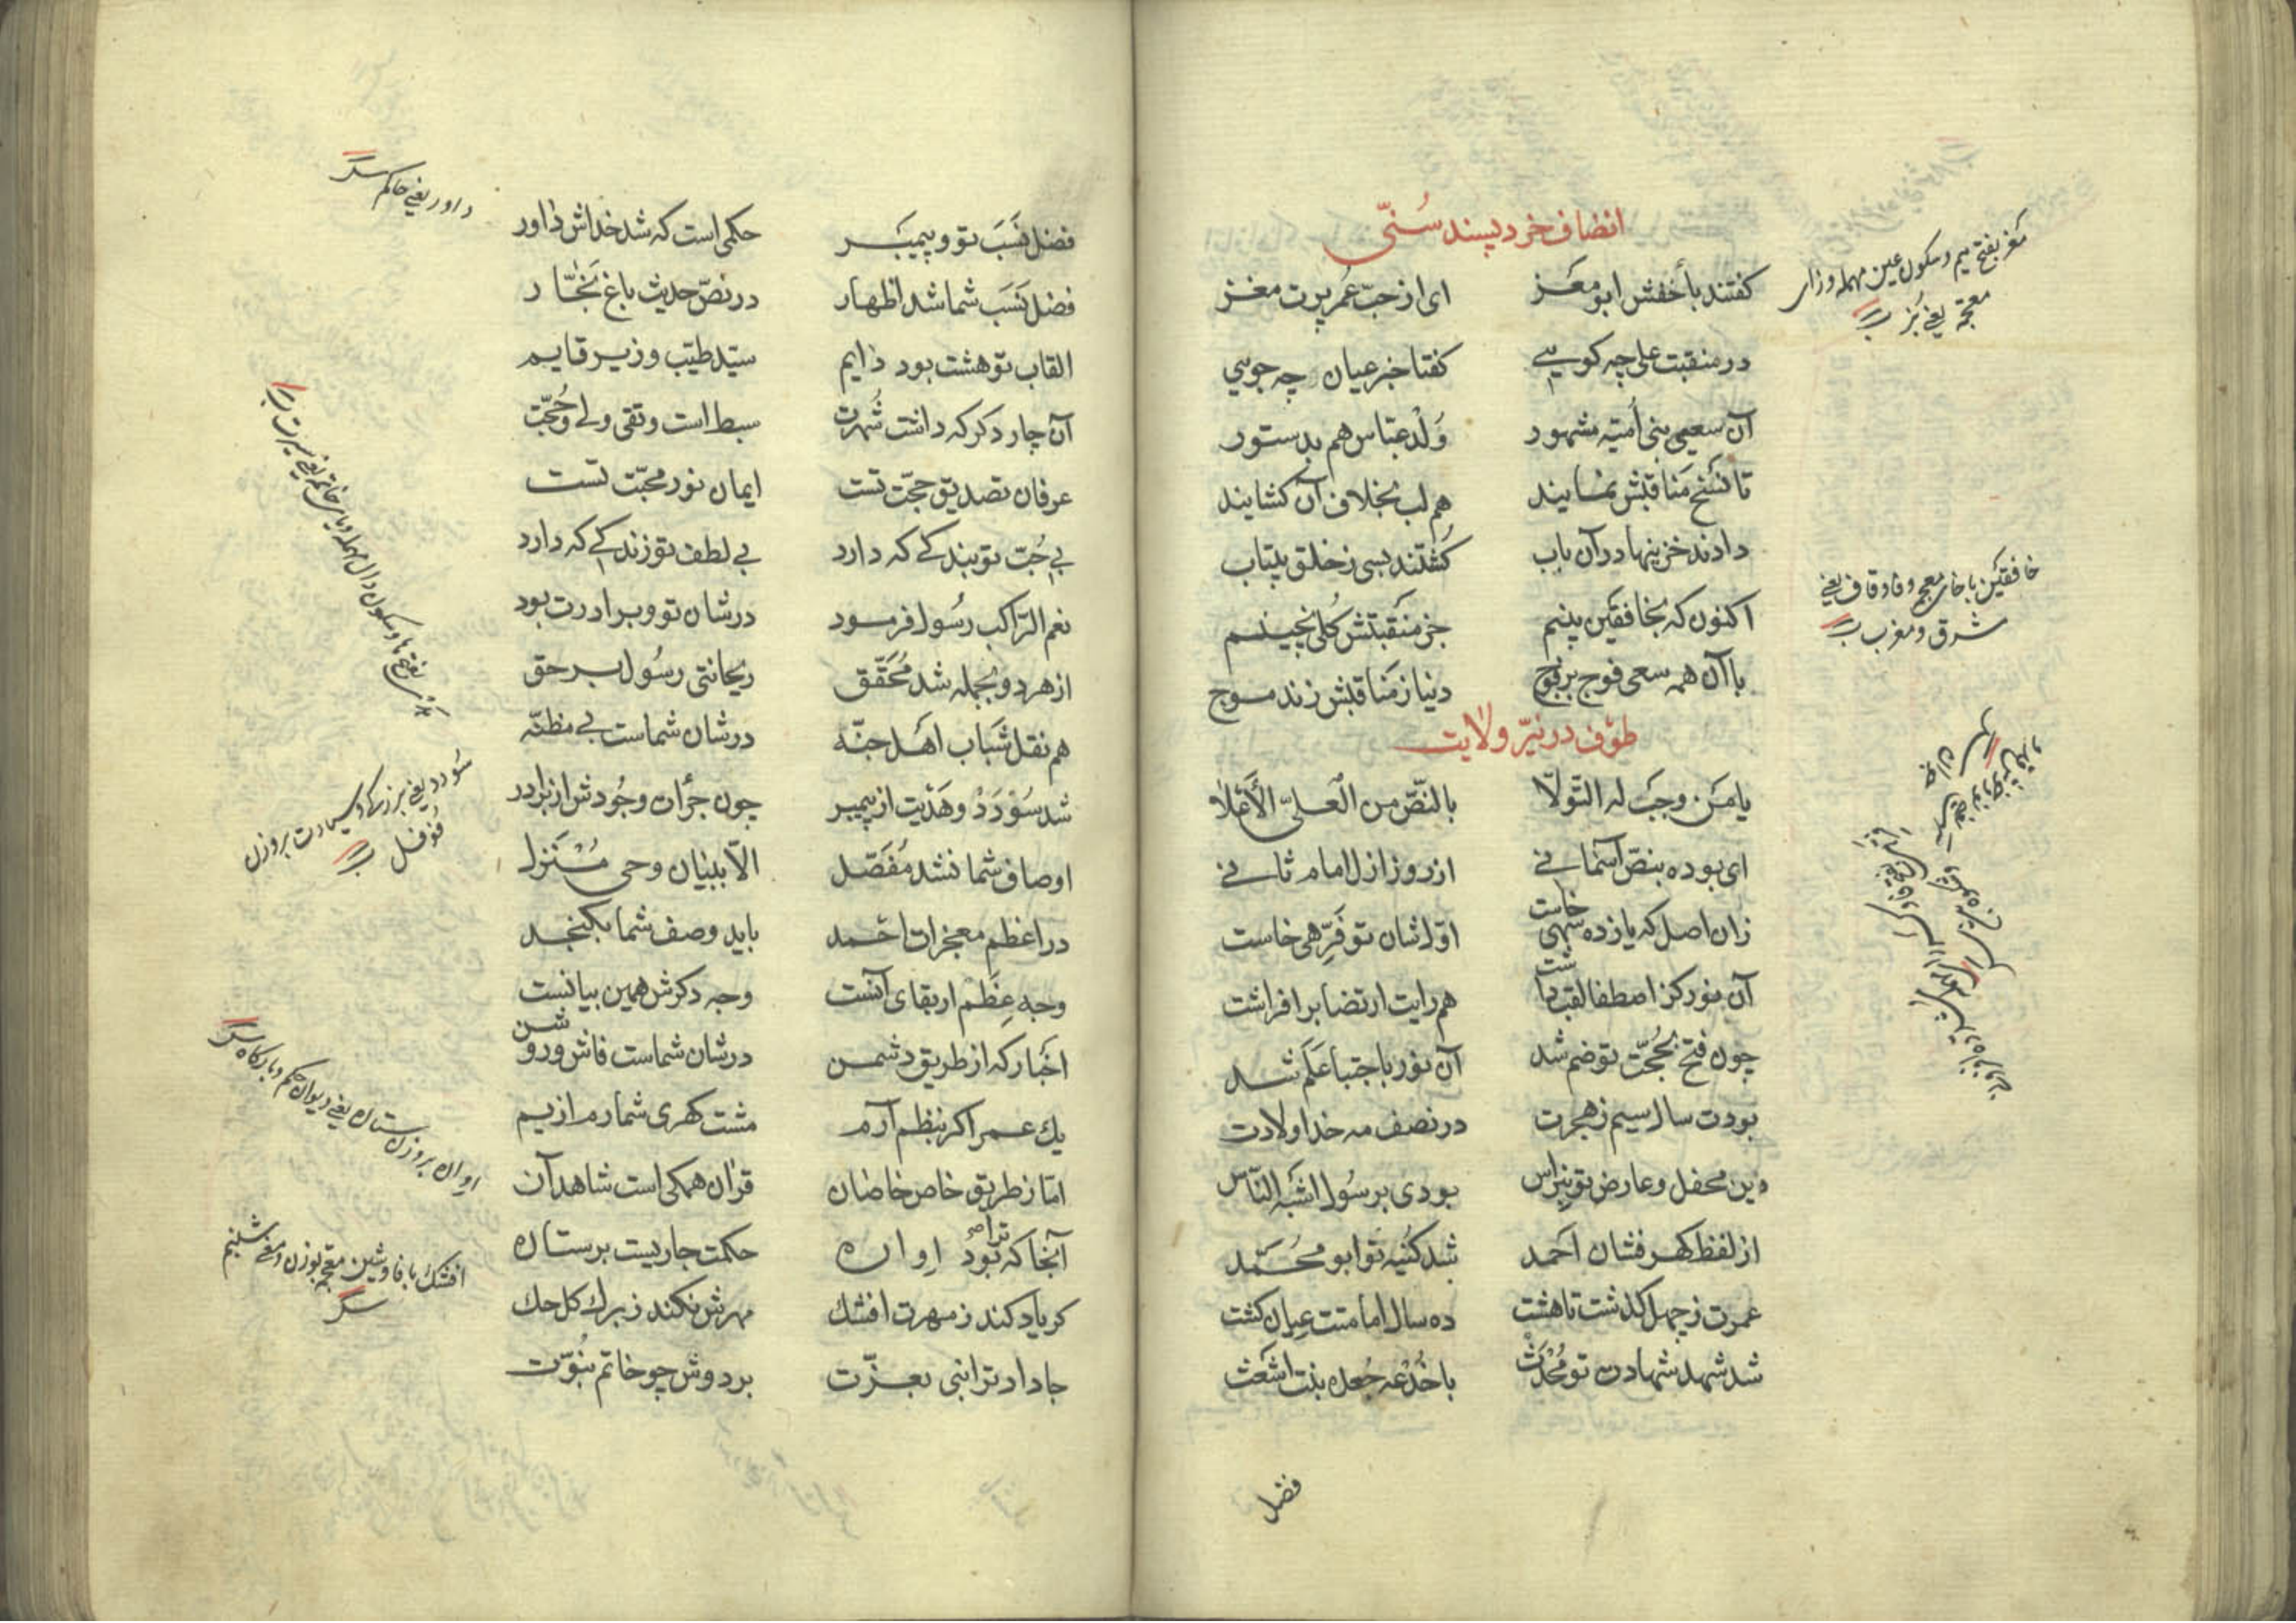 انصاف خرد پسند سُنّی
کفتند بأخفش ابو مَعَز ای از حبّ عُمر پرت مغز
در منقبت علی چه کویی کفتا خبر عیان چه جویی
آن سعیِ بنی اُمیّه مشهور وَلْد عبّاس هم بدستور
تا نسخ مَناقبش نمایند هم لب بخلاف آن کشایند
دادند خزینها در آن باب کُشتند بسی ز خلق بیتاب
اکنون که بخافقَین بینم جز منقَبتش کُلی نچینم
با آن همه سعی فوج بر فوج دنیا ز مَناقبش زند موج
طوف در نیّر ولایت
یا مَن وجَبَ له التّولّا بالنّصّ من العلیّ الأعلا
ای بوده بنصّ آسمانی از روز ازل امام ثانی
زان اصل که یازده شهی خاست اوّل شان تو فَرِّهی خاست
آن نور کز اصطفا لقب داشت هم رایت ارتضا بر افراشت
چون فتح بحُجّت تو ضم شد آن نور باجتبا عَلَم شد
بودت سال سیم ز هجرت در نصف مه خدا ولادت
دین محفل و عارض تو نبراس بودی برسُول اشبَه النّاس
از لفظ کهر فشان احمد شد کُنیه تو ابو محُمّد
عمرت ز چهل کذشت تا هشت ده سال امامتت عیان کشت
شد شهد شهادت تو مُحْدَث با خُدْعه جُعده بنت اشعَث
فضل
مَعز بفتح میم و سکون عین مهمله و زاء
معجمه یعنی بُز
خافقَین با خاء معجمه و فا و قاف یعنی
شرق و مغرب
فضل نسَبَ تو و پیمبَر حکمی است که شد خداش داور
فضل نسَبَ شما شد اظهار در نصّ حدیث باغ نجّار
القاب تو هشت بود دایم سیّد طیّب وزیر قایم
آن چار دکر که داشت شُهرت سبط است و تقی ولی و حُجّت
عرفان تصدیق حجّت تست ایمان نور محبّت تست
بی حُبّ تو بندکی که دارد بی لطف تو زندکی که دارد
نعم الرّاکب رسُول فرمود در شان تو و برادرت بود
از هر دو بجمله شد مُحَقّق ریحانتی رسُول بر حق
هم نقل شَباب اهَل جنّه در شان شماست بی مظنّه
شد سُؤدَدْ و هَدْیت از پیمبر چون جرُأن و جُودش از برادر
اوصاف شما نشد مُفَصّل الّا ببنیان وحی مُنْزَل
در اعظم معجزات احمد باید وصف شما بکنجد
وجه عِظَم ار بقای آنست وجه دکرش همین بیانست
اخبار که از طریق دشمن در شان شماست فاش و روشن
یك عمر اکر بنظم آرم مشت کهری شمارم از یم
امّا ز طریق خاص خاصان قرآن همکی است شاهد آن
آنجا که بُود ترا اِوان حکمت جاریست بر ستان
کر یاد کند ز مهرت افشك مهرش نکند ز برك کل حك
جا داد ترا نبی بعزّت بر دوش چو خاتم نبوّت
داور یعنی حاکم
سُودد یعنی بزرکی و سیادت بر وزن
فُوفل
اوان بر وزن ستان یعنی دیوان حکم و بارکاه
افشك با فا و شین معجمه بوزن و معنی شبنم